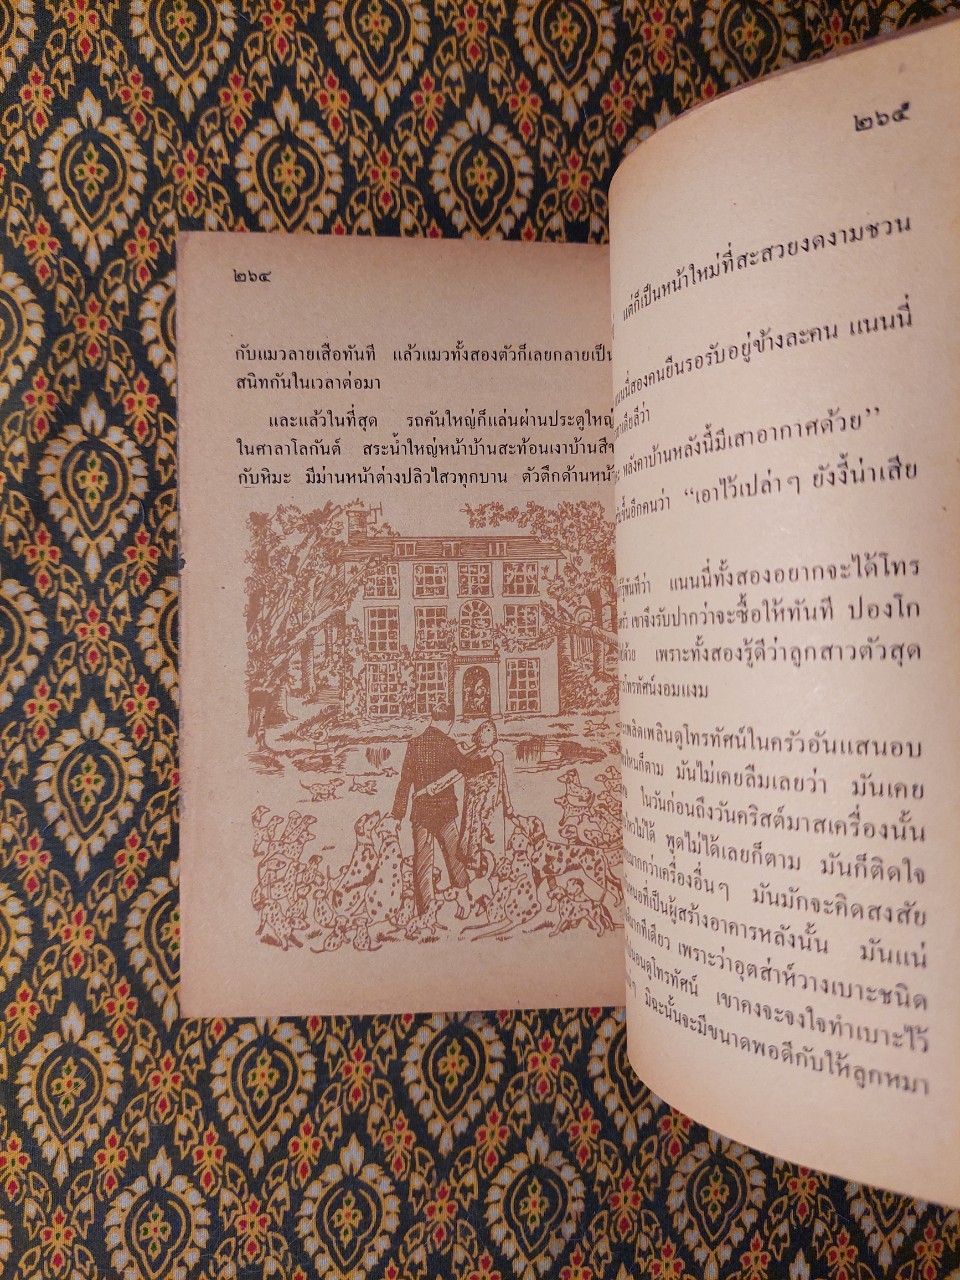 ๒๖๔
กับแมวลายเสือทันที แล้วแมวทั้งสองตัวก็เลยกลายเป็น
สนิทกันในเวลาต่อมา
และแล้วในที่สุด รถคันใหญ่ก็แล่นผ่านประตูใหญ่
ในศาลาโลกันต์ สระน้ำใหญ่หน้าบ้านสะท้อนเงาบ้านสี
กับหิมะ มีม่านหน้าต่างปลิวไสวทุกบาน ตัวตึกด้านหน้า
๒๖๕
แต่ก็เป็นหน้าใหม่ที่สะสวยงดงามชวน
แนนนี่สองคนยืนรอรับอยู่ข้างละคน แนนนี่
หลังคาบ้านหลังนี้มีเสาอากาศด้วย”
ขึ้นอีกคนว่า “เอาไว้เปล่าๆ ยังงี้น่าเสีย
ทันทีว่า แนนนี่ทั้งสองอยากจะได้โทร
เขาจึงรับปากว่าจะซื้อให้ทันที ปองโก
ด้วย เพราะทั้งสองรู้ดีว่าลูกสาวตัวสุด
โทรทัศน์งอมแงม
เพลิดเพลินดูโทรทัศน์ในครัวอันแสนอบ
ไหนก็ตาม มันไม่เคยลืมเลยว่า มันเคย
ในวันก่อนถึงวันคริสต์มาสเครื่องนั้น
ไหวไม่ได้ พูดไม่ได้เลยก็ตาม มันก็ติดใจ
มากกว่าเครื่องอื่นๆ มันมักจะคิดสงสัย
ที่เป็นผู้สร้างอาคารหลังนั้น มันแน่
มากทีเดียว เพราะว่าอุตส่าห์วางเบาะชนิด
นอนดูโทรทัศน์ เขาคงจะจงใจทำเบาะไว้
มิฉะนั้นจะมีขนาดพอดีกับให้ลูกหมา